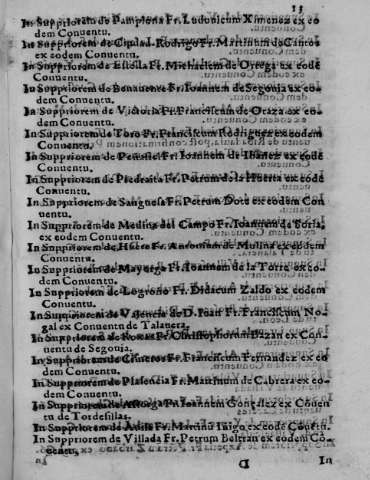 13
In Suppriorem de Pamplona Fr. Ludouicum Ximenez ex eo
dem Conuentu.
In Suppriorem de Ciudad Rodrigo Fr. Martinum de Cantos
ex eodem Conuentu.
In Suppriorem de Estella Fr. Michaelem de Ortega ex eodē
Conuentu.
In Suppriorem de Benauente Fr. Ioannem de Segouia ex eo-
dem Conuentu.
In Suppriorem de Victoria Fr. Franciscum de Oraza ex eo-
dem Conuentu.
In Suppriorem de Toro Fr. Franciscum Rodriguez ex eodem
Conuentu.
In Suppriorem de Peñafiel Fr. Ioannem de Ibañez ex eodē
Conuentu.
In Suppriorem de Piedraita Fr. Petrum de la Huerta ex eodē
Conuentu.
In Suppriorem de Sanguesa Fr. Petrum Dote ex eodem Con
uentu.
In Suppriorem de Medina del Campo Fr. Ioannem de Soria,
ex eodem Conuentu.
In Suppriorem de Fr. Antonium de Mulina ex eodem
Conuentu.
In Suppriorem de Mayorga Fr. Ioannem de la Torre ex eo-
dem Conuentu.
In Suppriorem de Logroño Fr. Didacum Zaldo ex eodem
Conuentu.
In Suppriorem de Valencia de D. Ioan Fr. Franciscum No-
gal ex Conuentu de Talauera.
In Suppriorem de Fr. Bazan ex Con-
uentu de Segouia.
In Suppriorem de Cisneros Fr. Franciscum Fernandez ex eo
dem Conuentu.
In Suppriorem de Plasencia Fr. Martinum de Cabrera ex eo-
dem Conuentu.
In Suppriorem de Astorga Fr. Ioannem Gonçalez ex Conuen
tu de Tordesillas.
In Suppriorem de Auila Fr. Martinū Iñigo ex eodē Conuētu.
In Suppriorem de Villada Fr. Petrum Beltran ex eodem Co-
nuentu.
D In